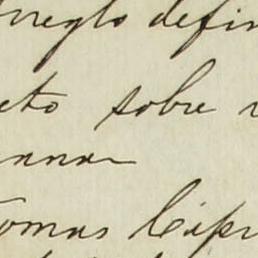 arreglo defin
eto sobre
anna
Tomas Cipr